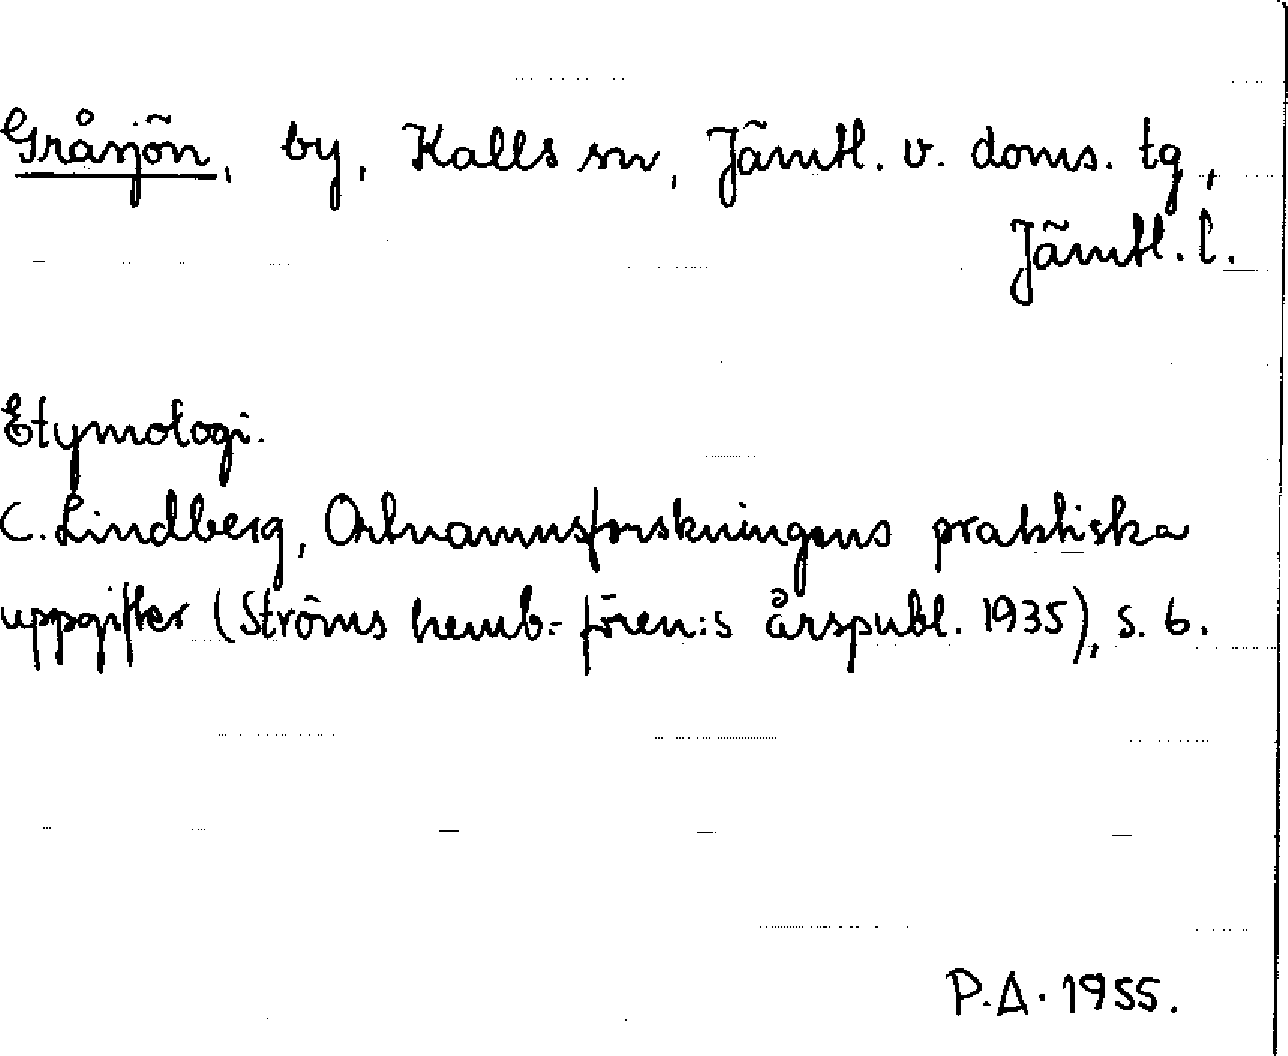 Gråsjön, by, Kalls sn, Jämtl. v. doms. tg,
Jämtl. l.
Etymologi.
C. Lindberg, Ortnamnsforskningens praktiska
uppgifter (Ströms hemb.-fören:s årspubl. 1935), s. 6.
P.A. 1955.